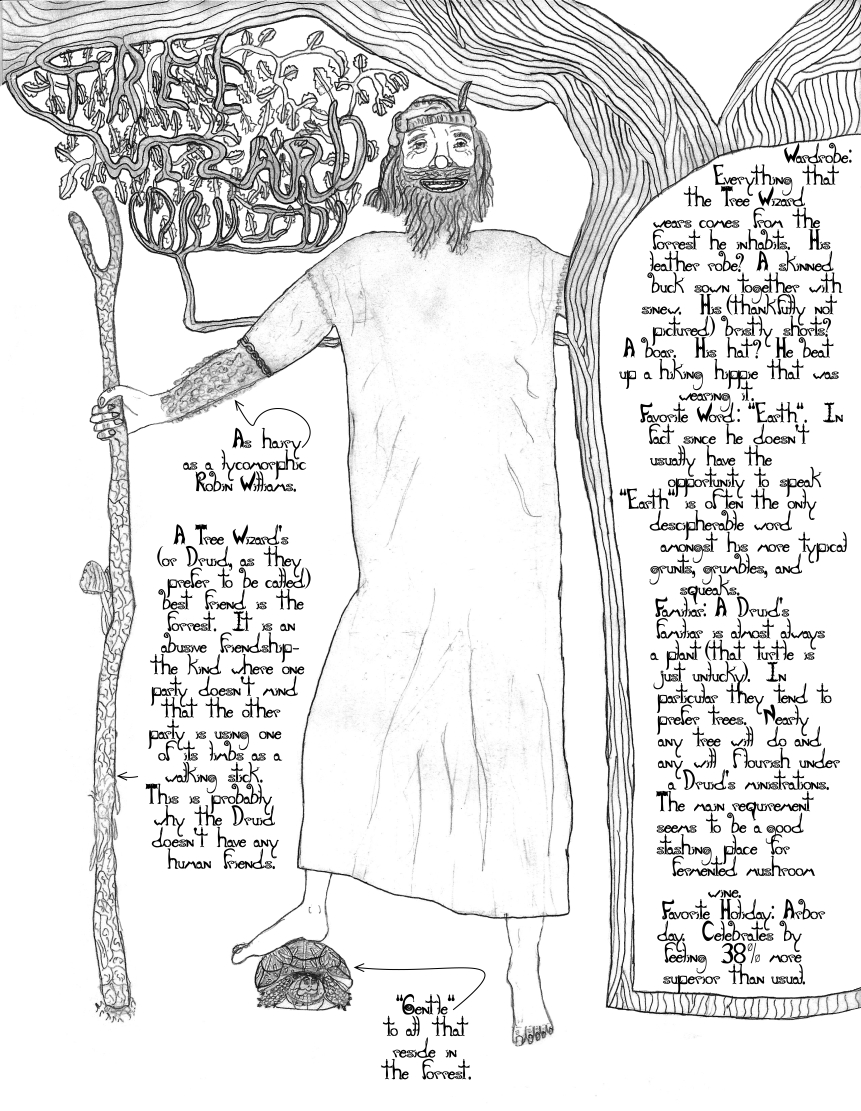 TREE
WIZARD
DRUID
As hairy
as a lycomorphic
Robin Williams.
A Tree Wizard's
(or Druid, as they
prefer to be called)
best friend is the
forrest. It is an
abusive friendship-
the kind where one
party doesn't mind
that the other
party is using one
of its limbs as a
walking stick.
This is probably
why the Druid
doesn't have any
human friends.
"Gentle"
to all that
reside in
the forrest.
Wardrobe:
Everything that
the Tree Wizard
wears comes from the
forrest he inhabits. His
leather robe? A skinned
buck sown together with
sinew. His (thankfully not
pictured) bristly shorts?
A boar. His hat? He beat
up a hiking hippie that was
wearing it.
Favorite Word: "Earth". In
fact since he doesn't
usually have the
opportunity to speak
"Earth" is often the only
descipherable word
amongst his more typical
grunts, grumbles, and
squeaks.
Familiar: A Druid's
familiar is almost always
a plant (that turtle is
just unlucky). In
particular they tend to
prefer trees. Nearly
any tree will do and
any will flourish under
a Druid's ministrations.
The main requirement
seems to be a good
stashing place for
fermented mushroom
wine.
Favorite Holiday: Arbor
day. Celebrates by
feeling 38% more
superior than usual.